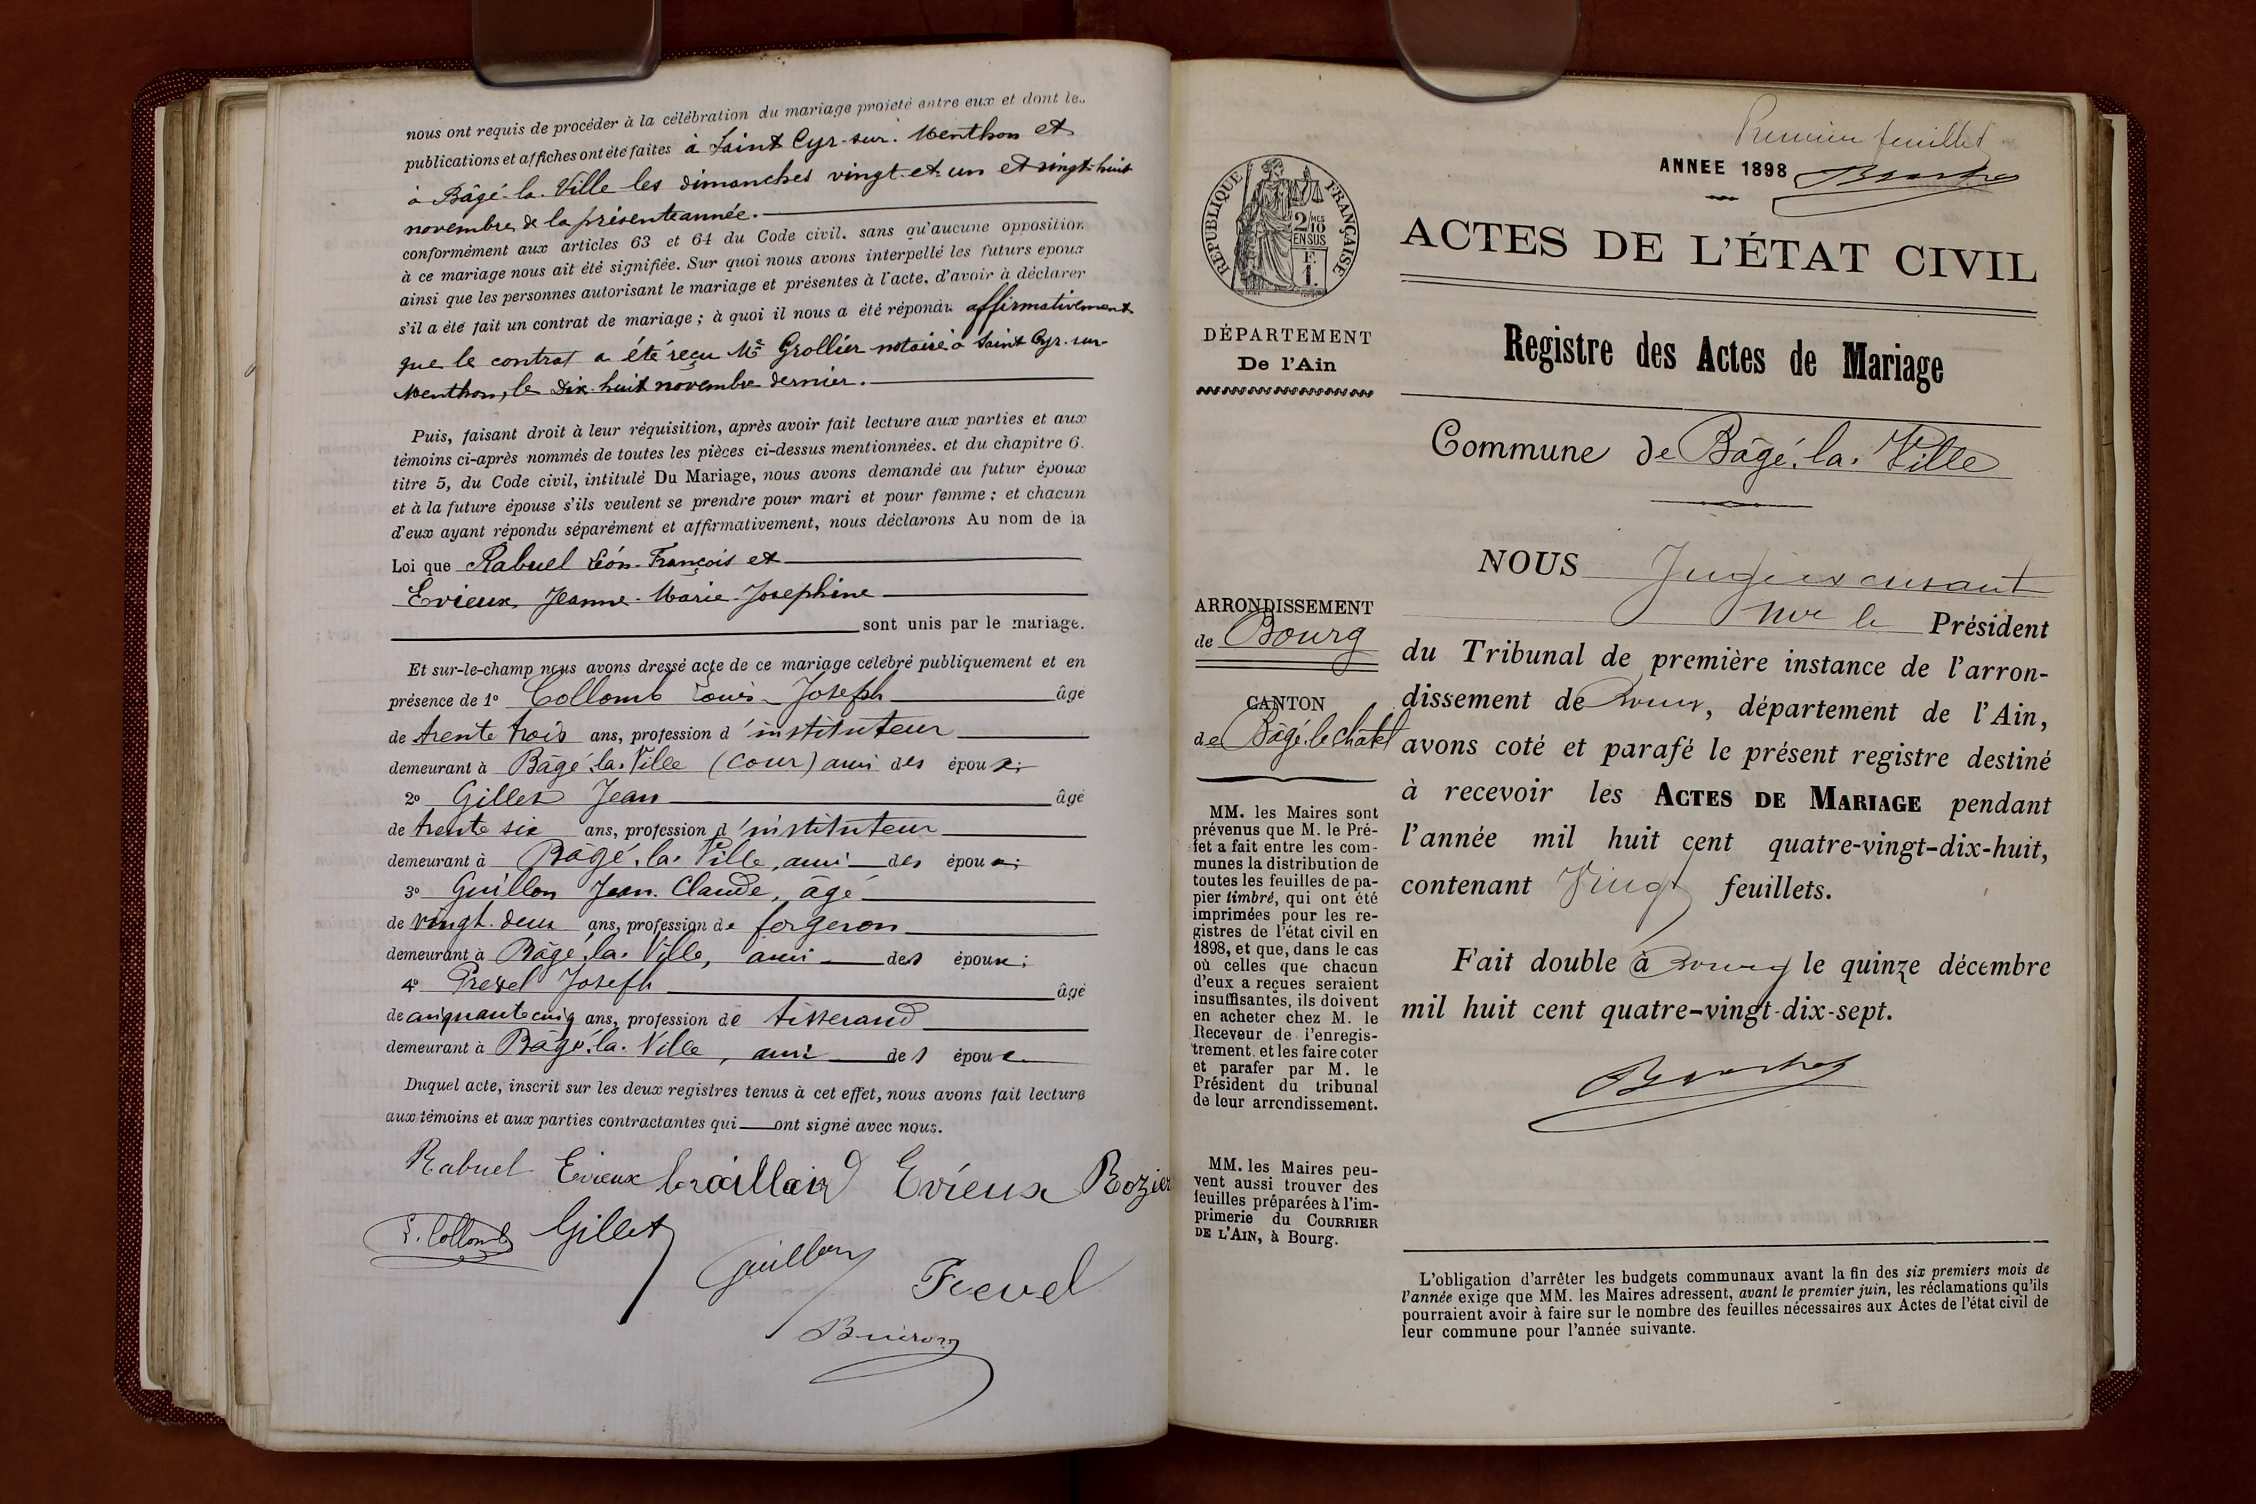 nous ont requis de procéder à la célébration du mariage projeté entre eux et dont les
publications et affiches ont été faites à Saint Cyr-sur-Menthon et
à Bâgé-la-Ville les dimanches vingt-et-un et vingt-huit
novembre de la présente année.
conformément aux articles 63 et 64 du Code civil. sans qu'aucune opposition
à ce mariage nous ait été signifiée. Sur quoi nous avons interpellé les futurs époux
ainsi que les personnes autorisant le mariage et présentes à l'acte, d'avoir à déclarer
s'il a été fait un contrat de mariage ; à quoi il nous a été répondu affirmativement
que le contrat a été reçu Me Grollier notaire à Saint Cyr-sur-
Menthon, le dix-huit novembre dernier.
Puis, faisant droit à leur réquisition, après avoir fait lecture aux parties et aux
témoins ci-après nommés de toutes les pièces ci-dessus mentionnées. et du chapitre 6.
titre 5, du Code civil, intitulé Du Mariage, nous avons demandé au futur époux
et à la future épouse s'ils veulent se prendre pour mari et pour femme ; et chacun
d'eux ayant répondu séparément et affirmativement, nous déclarons Au nom de la
Loi que Rabuel Léon-François et
Evieux Jeanne-Marie-Josephine
sont unis par le mariage.
Et sur-le-champ nous avons dressé acte de ce mariage célébré publiquement et en
présence de 1° Collomb Louis-Joseph âgé
de trente trois ans, profession d'instituteur
demeurant à Bâgé-la-Ville (Cour) ami des époux ;
2° Gillet Jean âgé
de trente six ans, profession d'instituteur
demeurant à Bâgé-la-Ville, ami des époux ;
3° Guillon Jean-Claude, âgé
de vingt-deux ans, profession de forgeron
demeurant à Bâgé-la-Ville, ami des époux ;
4° Prevel Joseph âgé
de cinquante cinq ans, profession de tisserand
demeurant à Bâgé-la-Ville, ami des époux
Duquel acte, inscrit sur les deux registres tenus à cet effet, nous avons fait lecture
aux témoins et aux parties contractantes qui ont signé avec nous.
Rabuel Evieux Evieux Rozier
L. Collomb Gillet
Guillon

Premier feuillet
ANNEE 1898
RÉPUBLIQUE FRANÇAISE
2/10 MES
EN SUS
F.
1.
ACTES DE L'ÉTAT CIVIL
DÉPARTEMENT
De l'Ain
Registre des Actes de Mariage
Commune de Bâgé-la-Ville
ARRONDISSEMENT
de Bourg
CANTON
de Bâgé-le-Châtel
MM. les Maires sont
prévenus que M. le Pré-
fet a fait entre les com-
munes la distribution de
toutes les feuilles de pa-
pier timbré, qui ont été
imprimées pour les re-
gistres de l'état civil en
1898, et que, dans le cas
où celles que chacun
d'eux a reçues seraient
insuffisantes, ils doivent
en acheter chez M. le
Receveur de l'enregis-
trement, et les faire coter
et parafer par M. le
Président du tribunal
de leur arrondissement.
MM. les Maires peu-
vent aussi trouver des
feuilles préparées à l'im-
primerie du COURRIER
DE L'AIN, à Bourg.
NOUS Juge
le Président
du Tribunal de première instance de l'arron-
dissement de Bourg, département de l'Ain,
avons coté et parafé le présent registre destiné
à recevoir les ACTES DE MARIAGE pendant
l'année mil huit cent quatre-vingt-dix-huit,
contenant Vingt feuillets.
Fait double à Bourg le quinze décembre
mil huit cent quatre-vingt-dix-sept.
L'obligation d'arrêter les budgets communaux avant la fin des six premiers mois de
l'année exige que MM. les Maires adressent, avant le premier juin, les réclamations qu'ils
pourraient avoir à faire sur le nombre des feuilles nécessaires aux Actes de l'état civil de
leur commune pour l'année suivante.